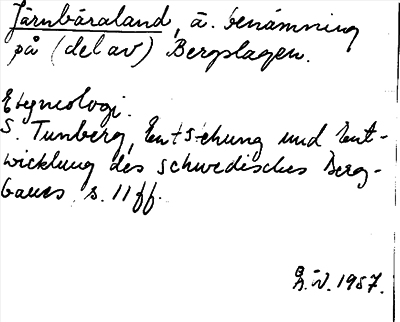 Järnbäraland, ä. benämning
på (del av) Bergslagen.
Etymologi.
S. Tunberg, Entstehung und Ent-
wicklung des schwedisches Berg-
baues s. 11 ff.
1957.